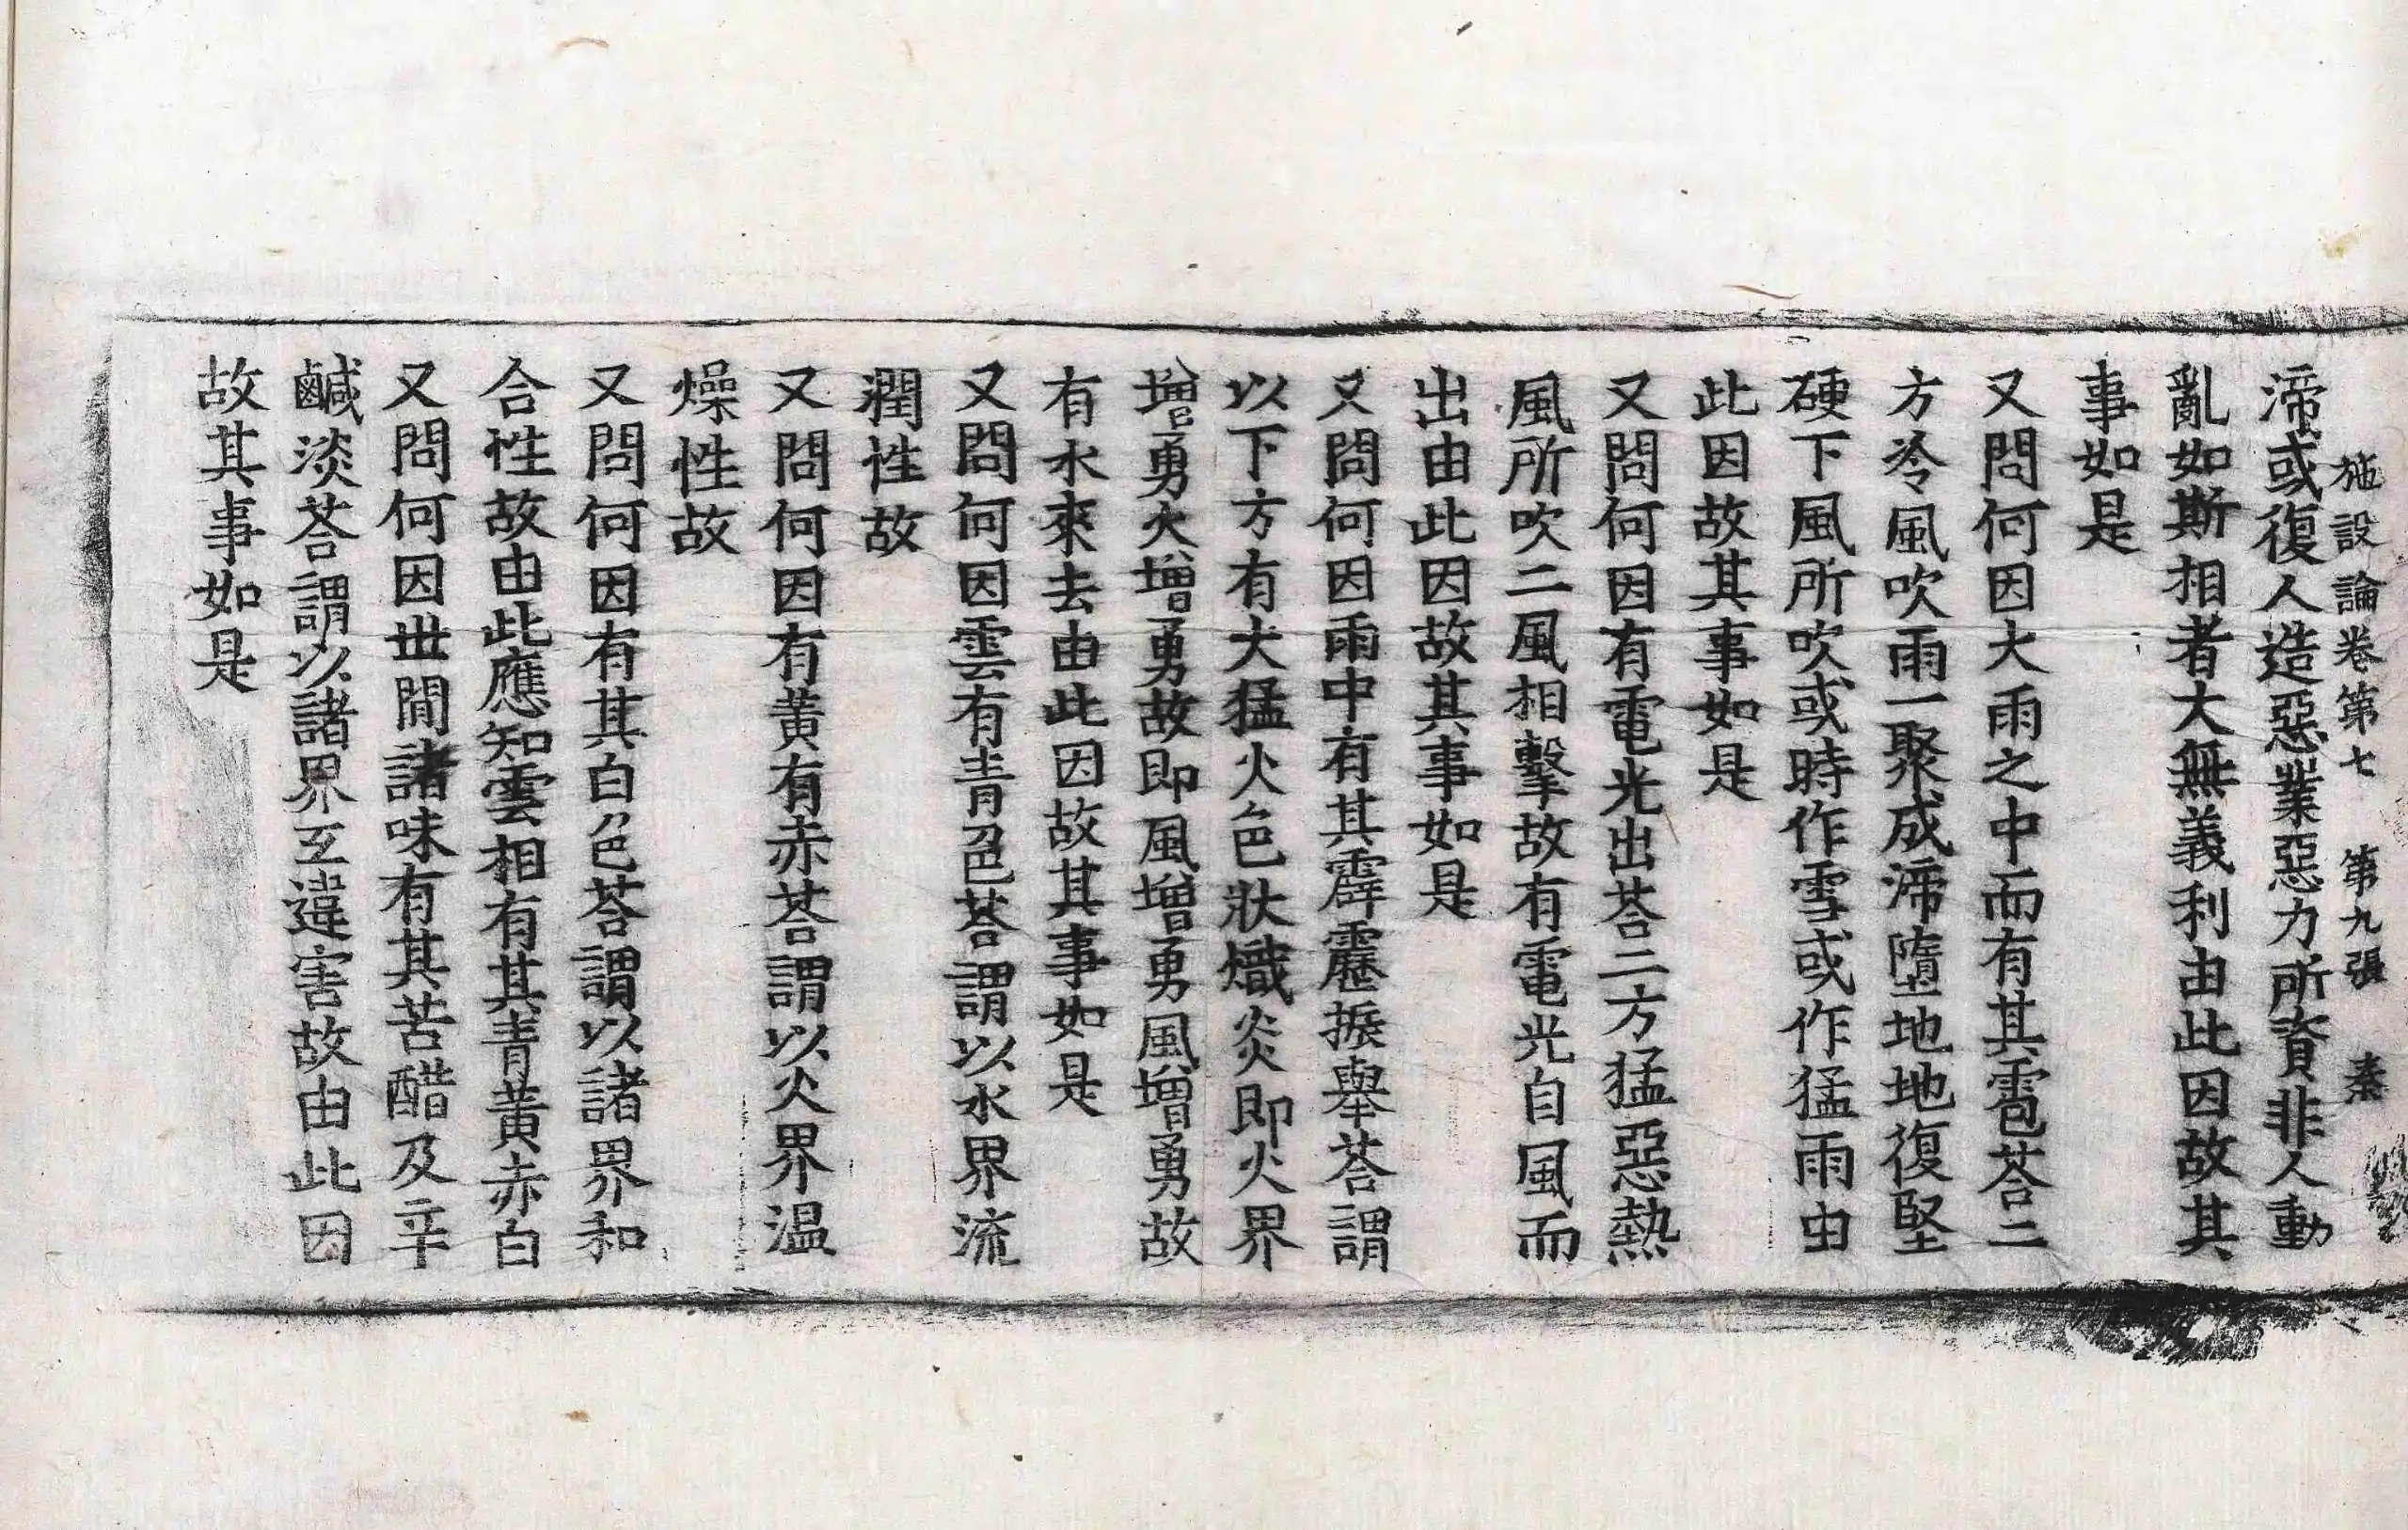 施設論卷第七　第九張　秦
渧或復人造惡業惡力所資非人動
亂如斯相者大無義利由此因故其
事如是
又問何因大雨之中而有其雹荅二
方冷風吹雨一聚成渧墮地地復堅
硬下風所吹或時作雪或作猛雨由
此因故其事如是
又問何因有電光出荅二方猛惡熱
風所吹二風相擊故有電光自風而
出由此因故其事如是
又問何因雨中有其霹靂振舉荅謂
以下方有大猛火色狀熾炎即火界
增勇火增勇故即風增勇風增勇故
有水來去由此因故其事如是
又問何因雲有青色荅謂以水界流
潤性故
又問何因有黃有赤荅謂以火界温
燥性故
又問何因有其白色荅謂以諸界和
合性故由此應知雲相有其青黃赤白
又問何因丗閒諸味有其苦醋及辛
鹹淡荅謂以諸界互違害故由此因
故其事如是